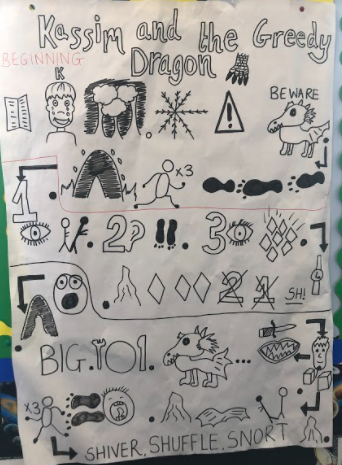 Kassim and the Greedy
Dragon
BEGINNING
K
BEWARE
x3
1.
2?
3
2 1
SH!
BIG.
x3
SHIVER, SHUFFLE, SNORT